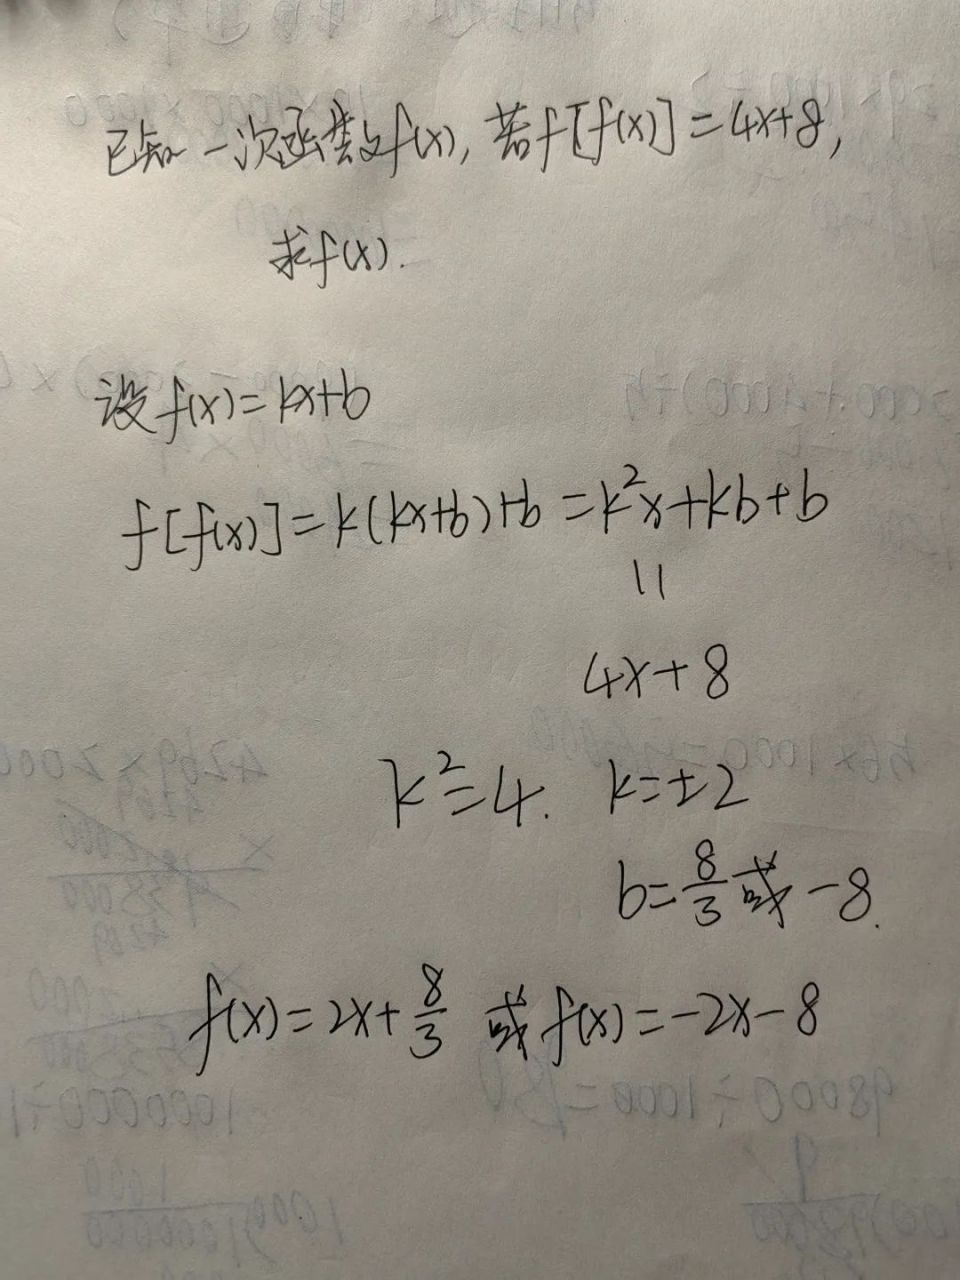 已知一次函数f(x), 若f[f(x)]=4x+8,
求f(x).
设f(x)=kx+b
f[f(x)]=k(kx+b)+b=k²x+kb+b
=
4x+8
k²=4. k=±2
b=8/3或-8.
f(x)=2x+8/3 或f(x)=-2x-8